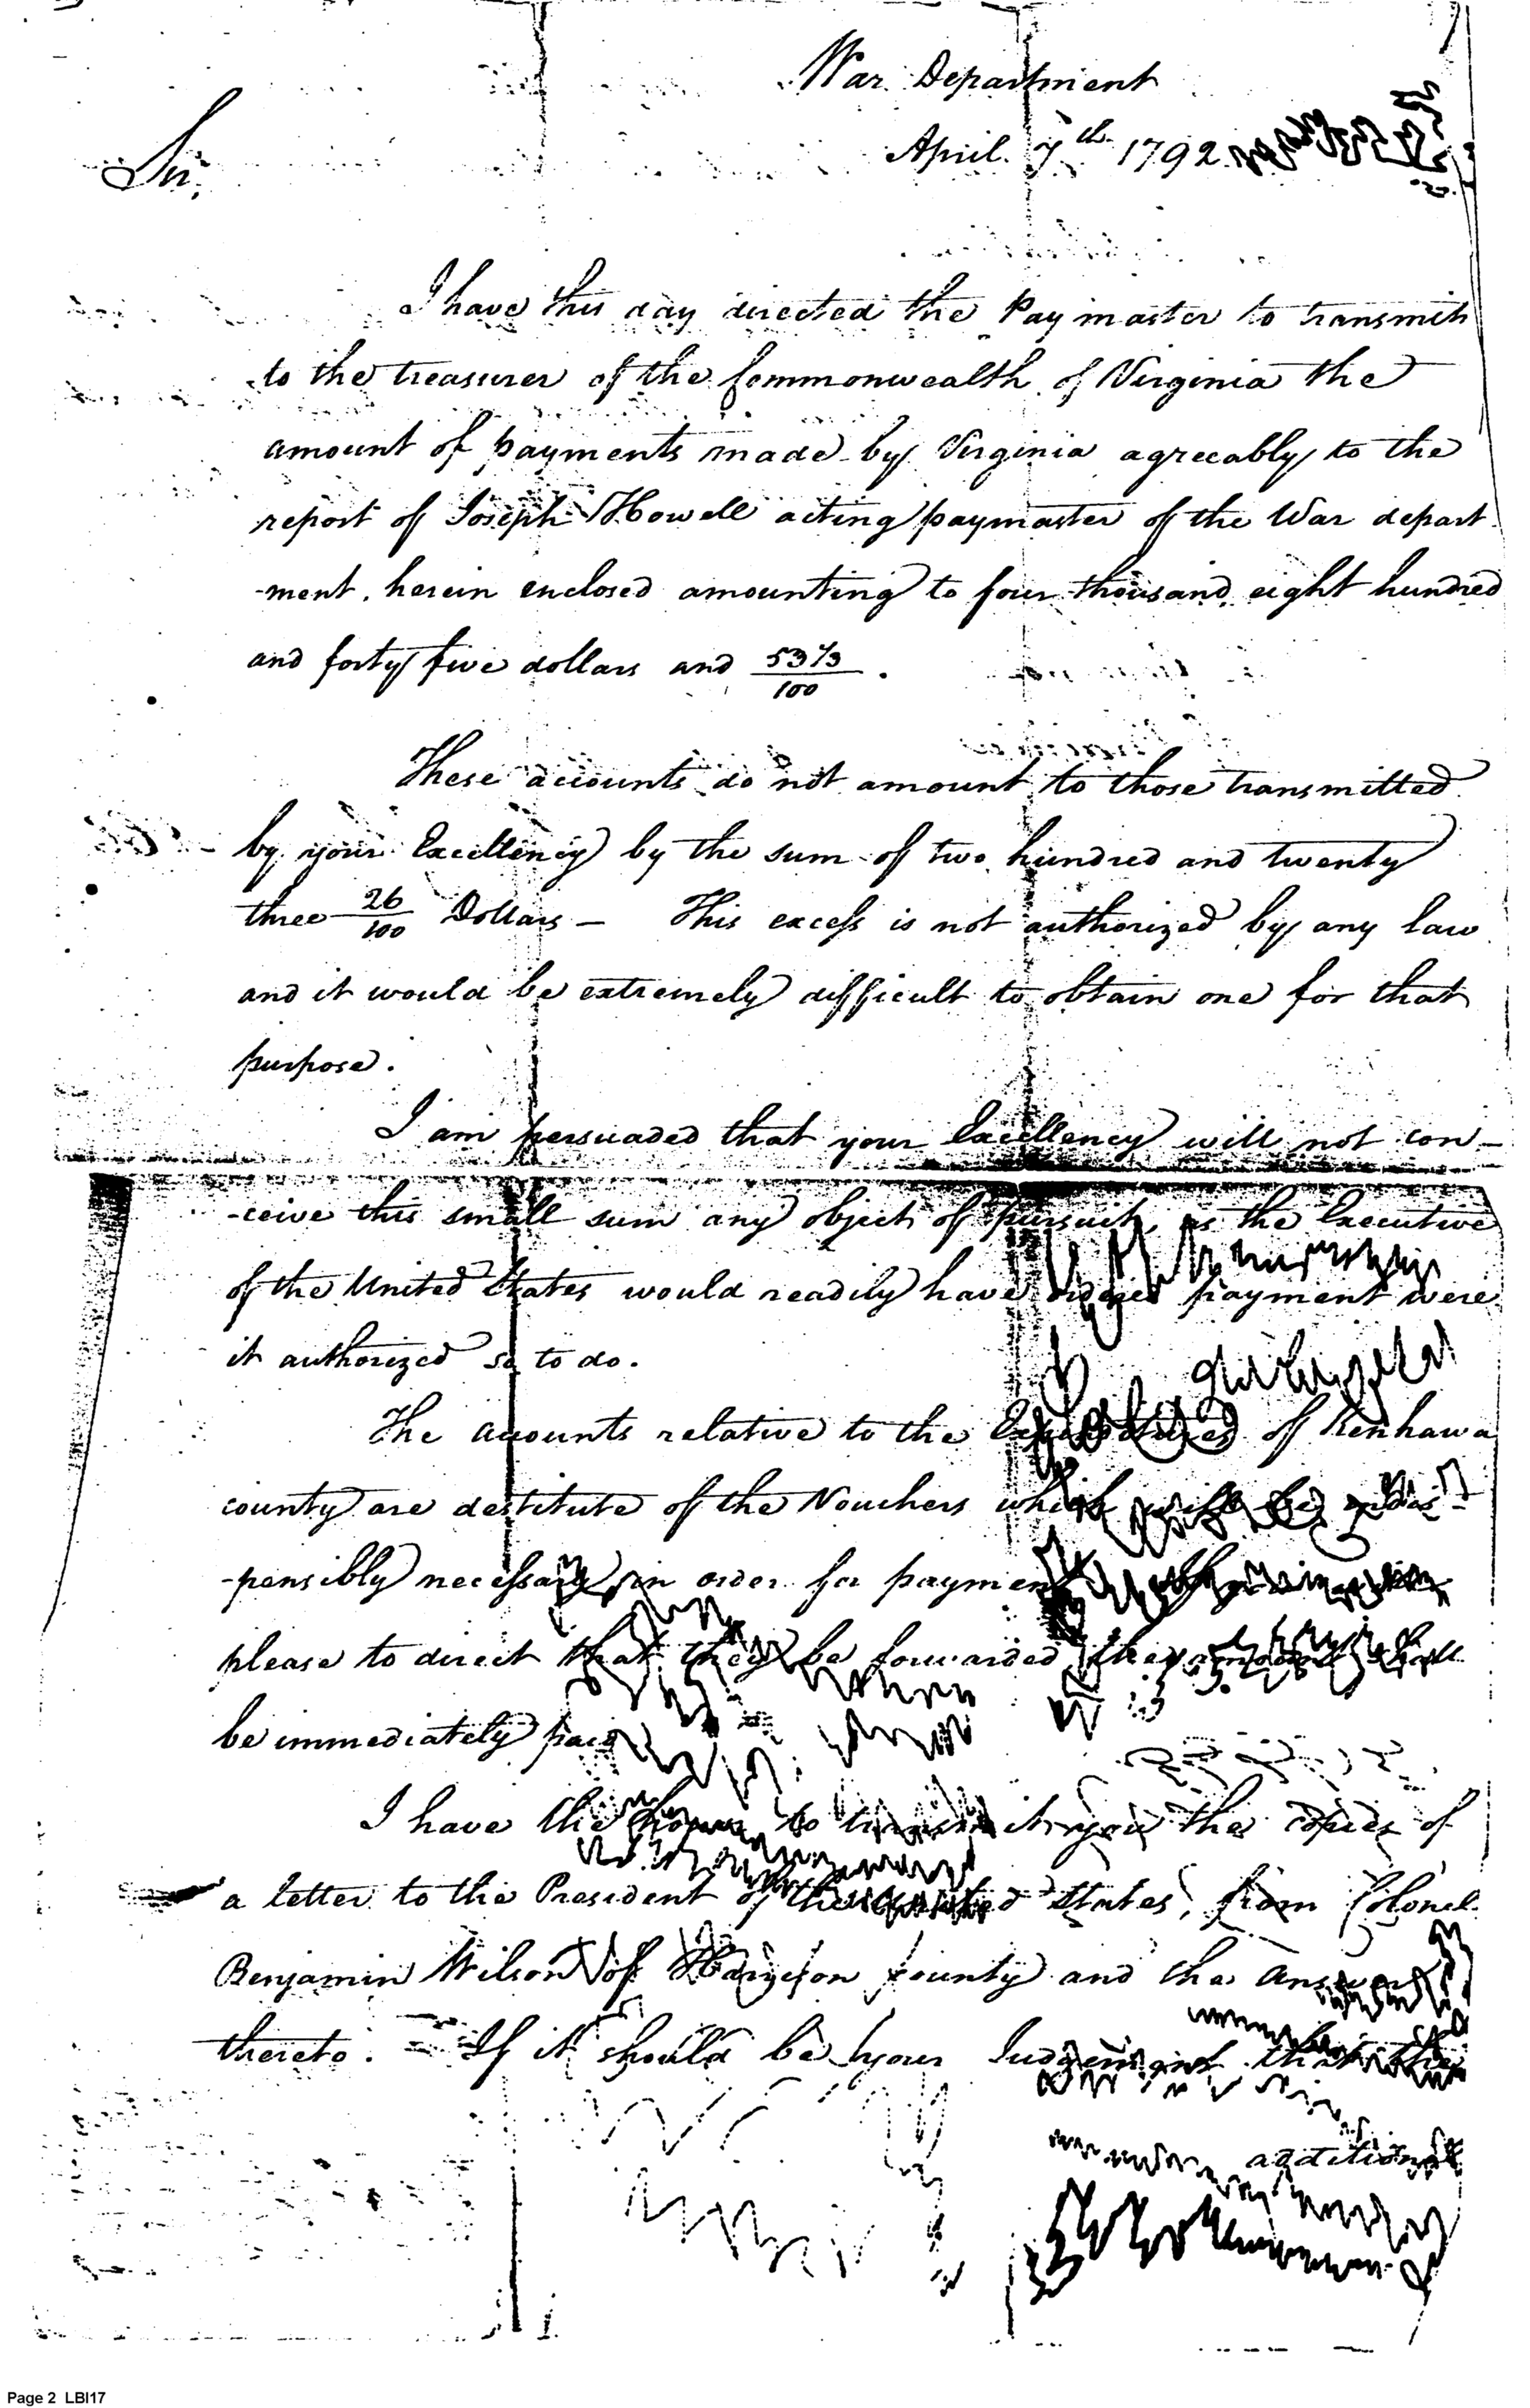 War Department
April 7th 1792
Sir,
I have this day directed the Pay master to transmit
to the treasurer of the Commonwealth of Virginia the
amount of payments made by Virginia agreeably to the
report of Joseph Howell acting paymaster of the War depart
-ment, herein enclosed amounting to four thousand eight hundred
and forty five dollars and 53 1/3/100.
These accounts do not amount to those transmitted
by your Excellency by the sum of two hundred and twenty
three 26/100 Dollars – This excess is not authorized by any law
and it would be extremely difficult to obtain one for that
purpose.
I am persuaded that your Excellency will not con-
-ceive this small sum any object of pursuit, as the Executive
of the United States would readily have ordered payment were
it authorized so to do.
The accounts relative to the of Kenhawa
county are destitute of the Vouchers which will be indis-
-pensibly necessary in order for payment
please to direct that they be forwarded the amount shall
be immediately paid
I have the honor to transmit you the copies of
a letter to the President of the United States, from Colonel
Benjamin Wilson of Harrison county and the answer
thereto. – If it should be your Judgement that the
additional
Page 2 LBI17